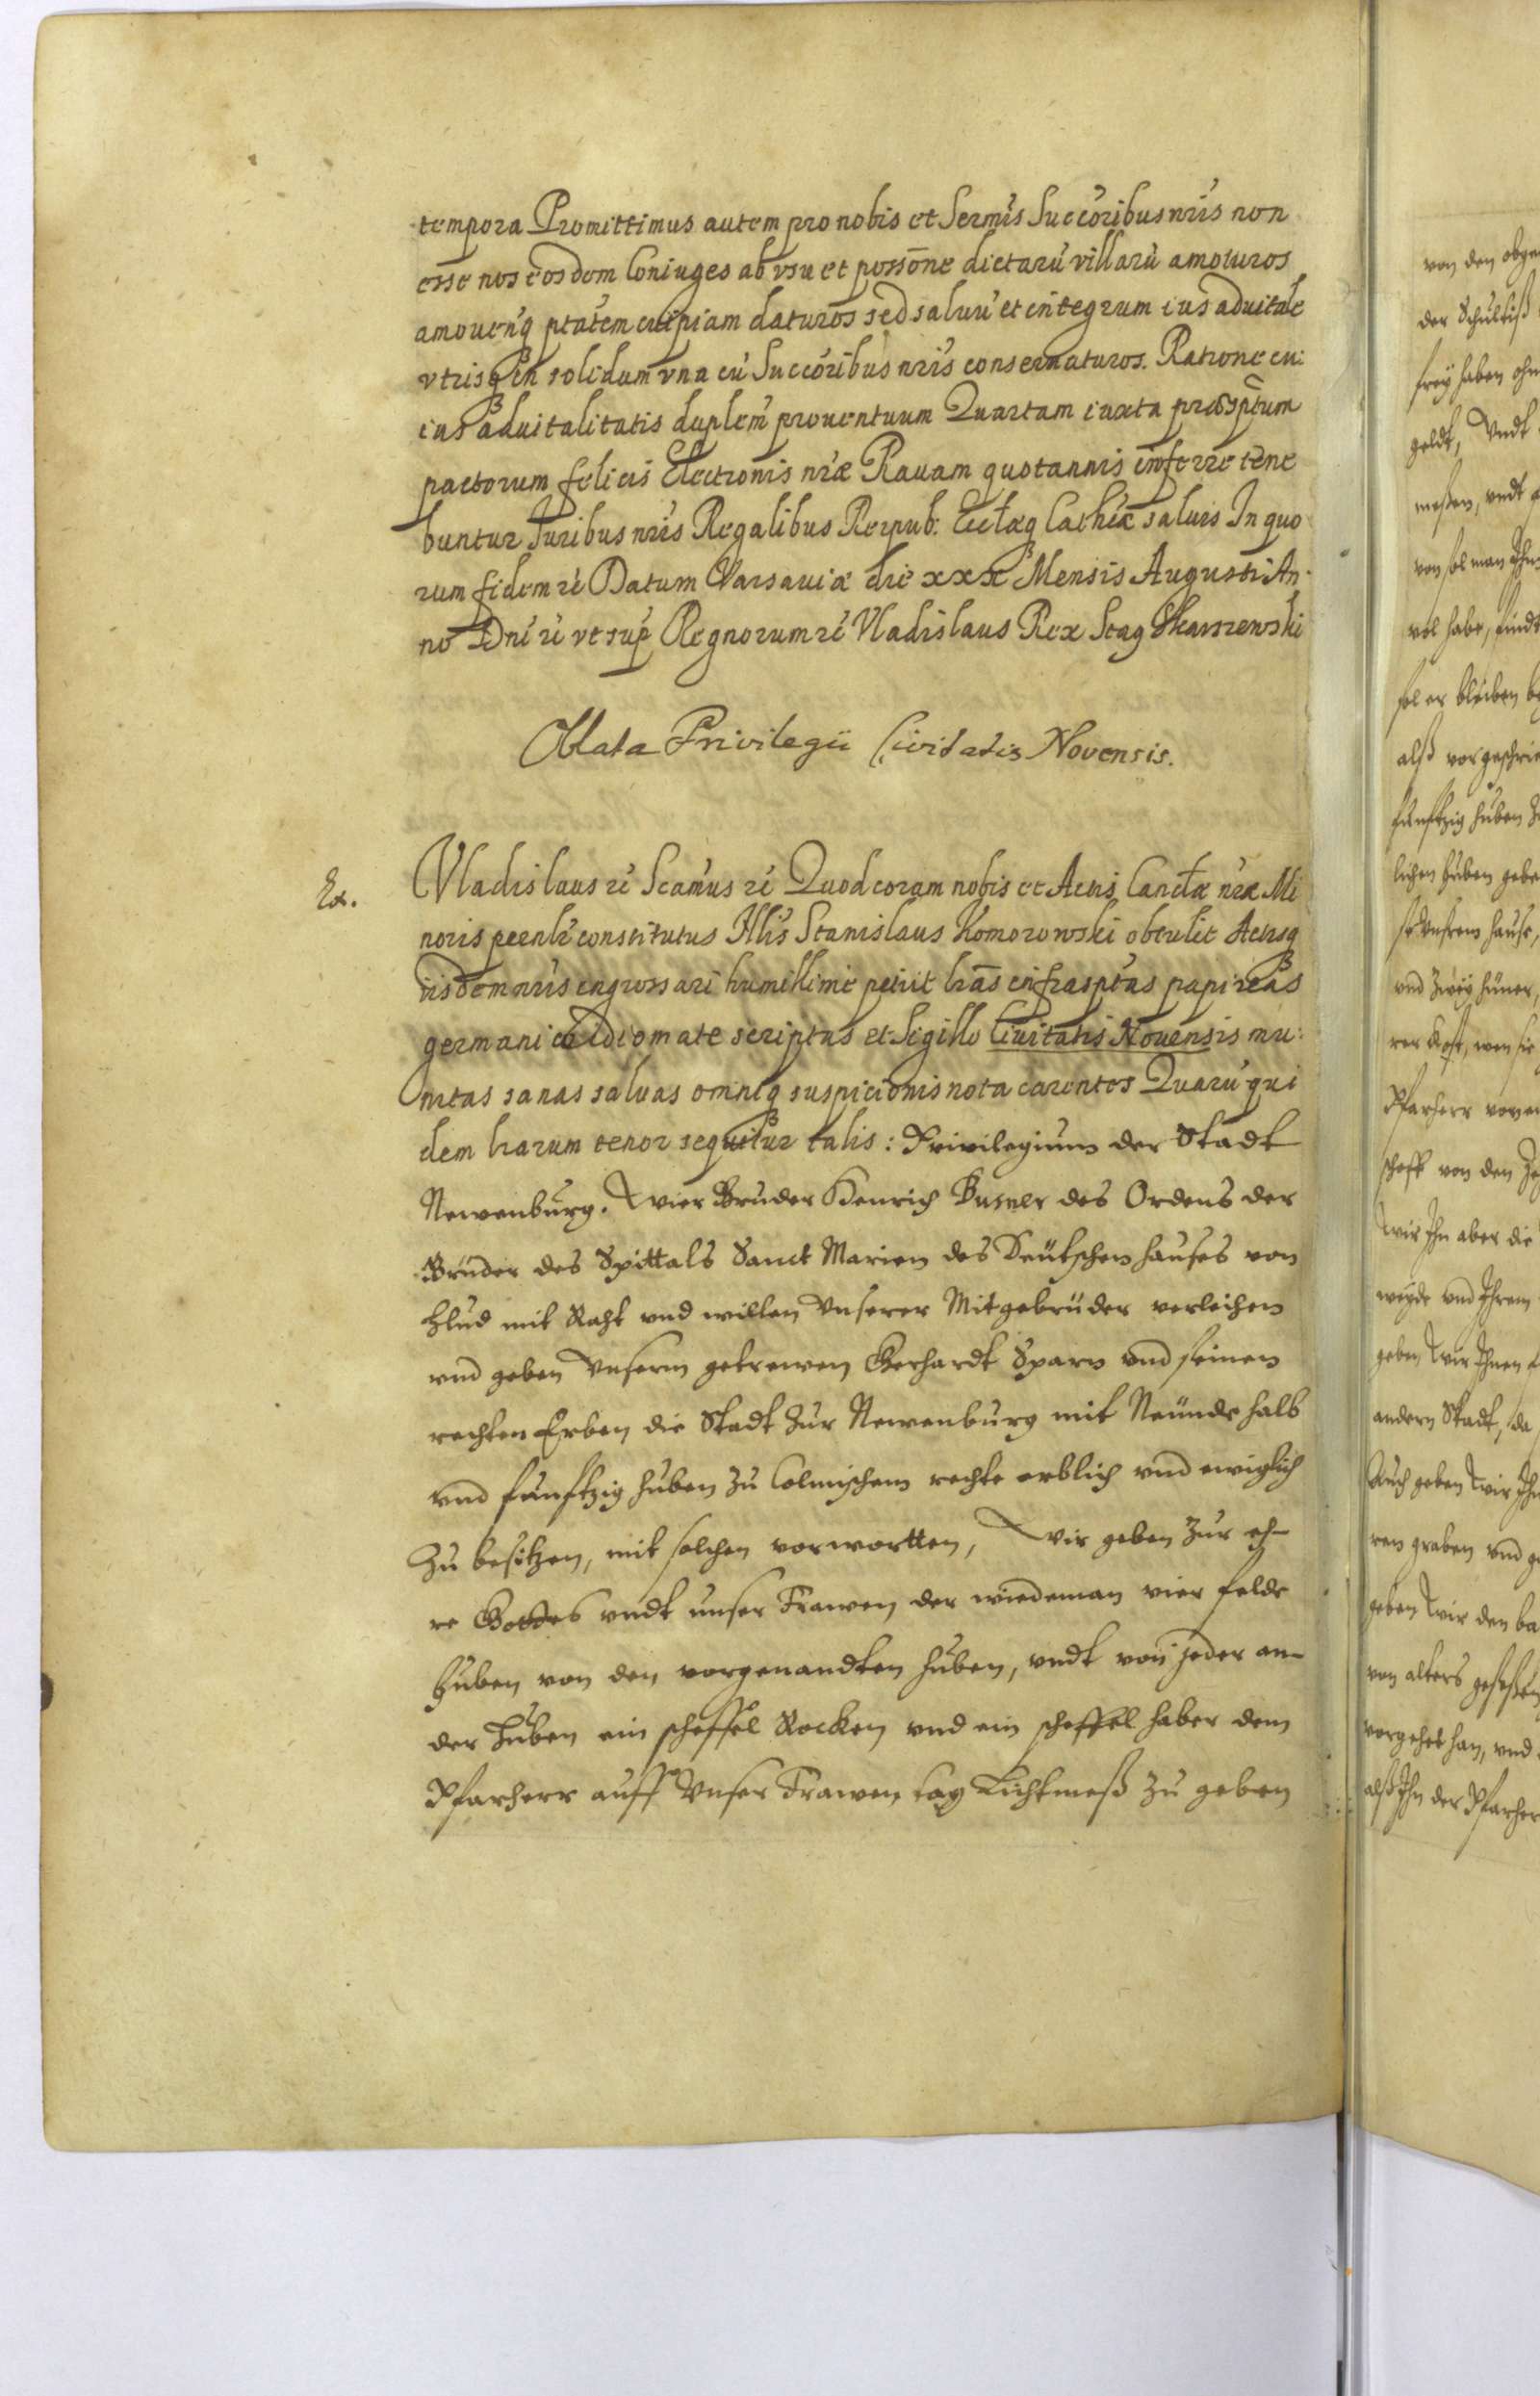 tempora Promittimus autem pro nobis et Sermis Succoribus nris non
esse nos eosdem Coniuges ab vsu et possone dictaru villaru amoturos
amouenq ptatem cuipiam daturos sed saluu et integrum ius aduitale
vtrisq in solidum vna cu Succoribus nris conseruaturos. Ratione cu:
ius aduitalitatis duplem prouentuum Quartam iuxta praescptum
pactorum felicis Electionis nrae Rauam quotannis inferre tene
buntur Iuribus nris Regalibus Reipub: Ecclaeq Cathcae saluis In quo
rum fidem &c Datum Varsauiae die xxx Mensis Augusti An-
no Dni &c vt sup Regnorum &c Vladislaus Rex Stag Skarszewski
Oblata Privilegii Civitatis Novensis.
Ex.
Vladislaus &c Scamus &c Quod coram nobis et Actis Cancellae nrae Mi
noris psenlr constitutus Illis Stanislaus Komorowski obtulit Actisq
iisdem nris ingrossari humillime petiit lras infrasptas papireas
germanico Idiomate scriptas et Sigillo Ciuitatis Nouensis mu:
nitas sanas saluas omniq suspicionis nota carentes Quaru qui
dem lrarum tenor sequitur talis: Privilegium der Stadt
Newenburg. Wier Bruder Henrich Dusmer des Ordens der
Brüder des Spittals Sanct Marien des Deutschen hauses von
mit Raht vnd willen Vnserer Mitgebrüder verleihen
vnd geben Vnserm getrewen Gerhardt Sparn vnd seinen
rechten Erben die Stadt zur Newenburg mit Neunde halb
vnd funftzig huben zu Colmischem rechte erblich vnd ewiglich
zu besitzen, mit solchen vorwortten, Wir geben zur eh-
re Gottes vndt unser Frawen der wiedeman vier felde
huben von den vorgenandten huben, vndt von jeder an-
der huben ein scheffel Rocken vnd ein scheffel haber dem
Pfarherr auff Vnser Frawen tag Lichtmeß zu geben
von den
der Schultiß
frey haben ohn
geldt, Vndt
meßen, vndt
von sol man Ihm
vol habe, findt
sol er bleiben
alß vorgeschrie
funftzig huben
lichen huben gebe
hause,
vnd zwey hüner,
rer Kost, wen sie
Pfarherr
scheff von den
Wir Ihn aber die
weyde vnd Ihrem
geben Wir Ihnen
andern Stadt, da
Auch geben Wir Ihn
ren graben vnd
geben Wir den
von alters geseßen
vorgehet han, vnd
alß Ihn der Pfarher